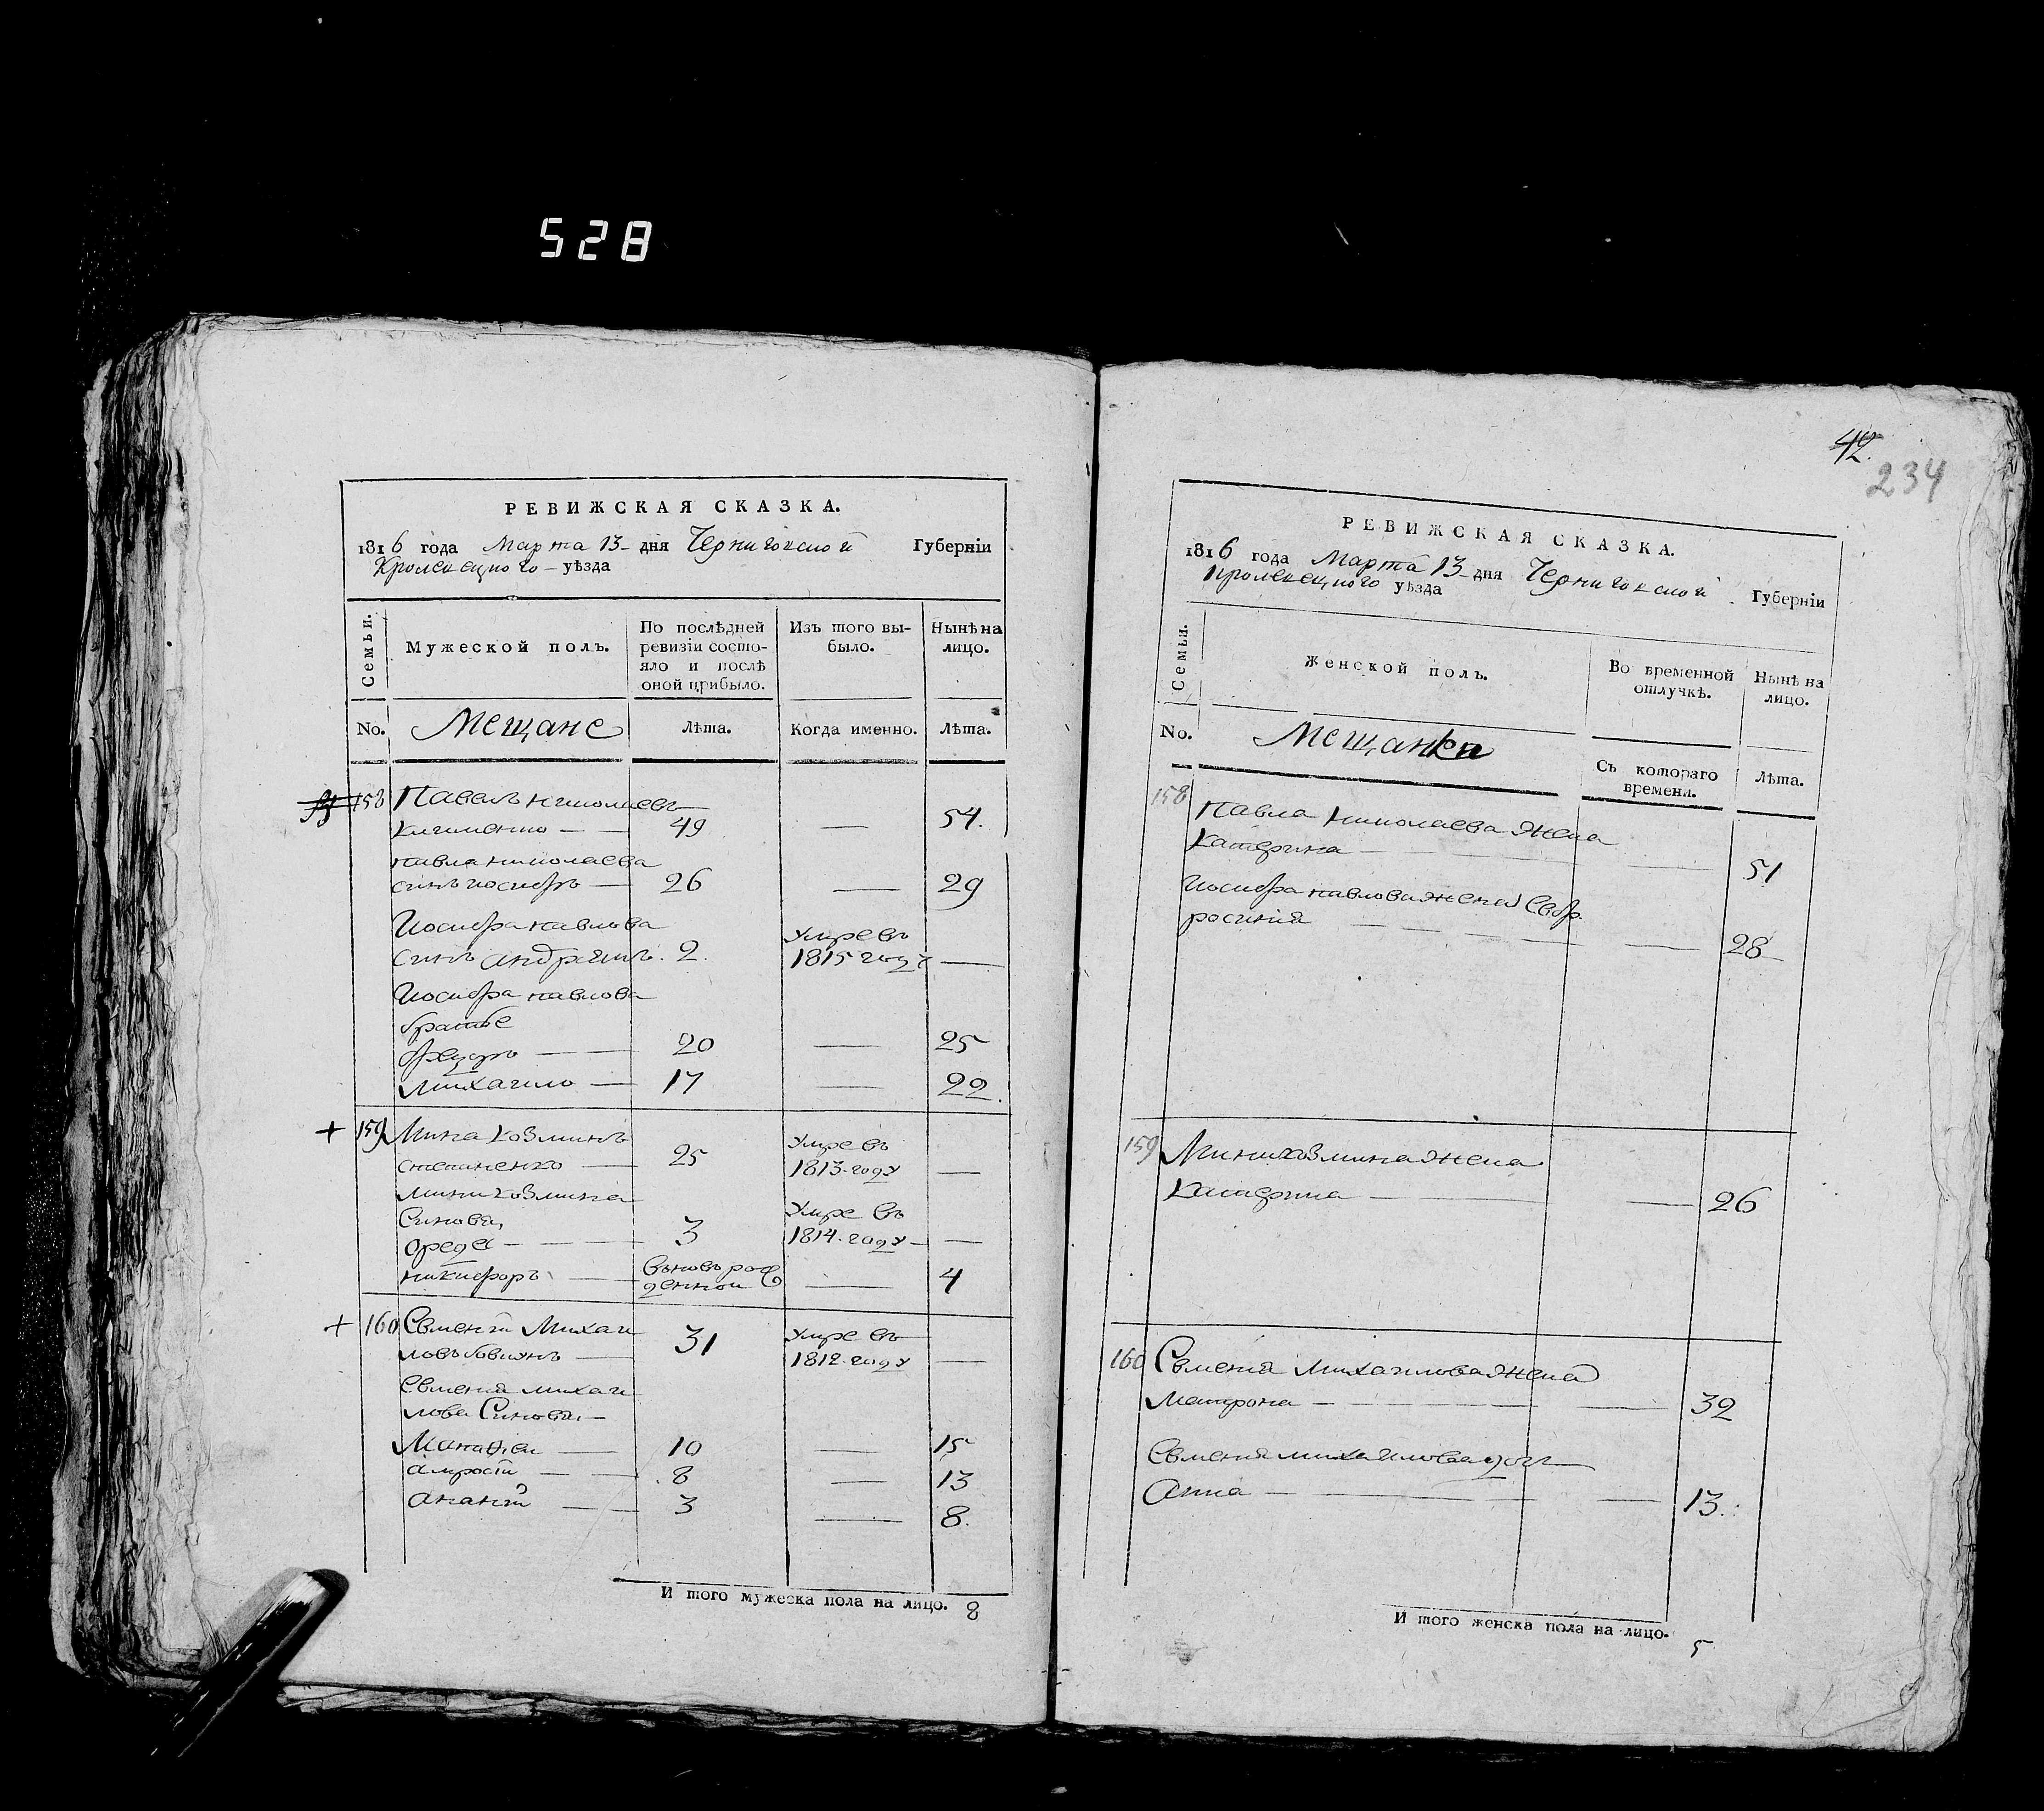 528
РЕВИЖСКАЯ СКАЗКА.
1816 года Марта 13 дня Черниговской Губерніи
Кролевецкого уѣзда
Семьи.
Мужеской полъ.
По послѣдней ревизіи состо-
яло и послѣ
оной прибыло.
Изъ того вы-
было.
Нынѣ на
лицо.
No. Мещане Лѣта. Когда именно. Лѣта.
158 Павелъ Николаевъ
49 — 54.
павла николаева
синъ иосифъ — 26 — 29
Иосифа павлова Умре въ
синъ андреянъ. 2. 1815 году —
Иосифа павлова
братъе
федоръ — 20 — 25
михайло — 17 — 22.
+ 159 Мина козминъ Умре въ
степаненко — 25 1813 году —
мини козмина
Синови, Умре въ
3 1814 году —
никифоръ — въновь рож
денной — 4
+ 160 Евменій Михай 31 Умре въ
ловъ 1812 году —
Евменія михай
лова Синови, —
Матвѣй — 10 — 15
амросій — 8 — 13
ананій — 3 — 8.
И того мужеска пола на лицо. 8
42.
234
РЕВИЖСКАЯ СКАЗКА.
1816 года Марта 13 дня Черниговской Губерніи
Кролевецкого уѣзда
Семьи.
Женской полъ.
Во временной
отлучкѣ.
Нынѣ на
лицо.
No. Мещанки
Съ котораго
времени.
Лѣта.
158 Павла николаева жена
Катерина — — 51
Иосифа павлова жена Евф
росинія — — 28
159 Мини козмина жена
Катерина — — 26
160 Евменія михайлова жена
Матрона — — 32
Евменія михайлова дочь
Анна — — 13.
И того женска пола на лицо.
5